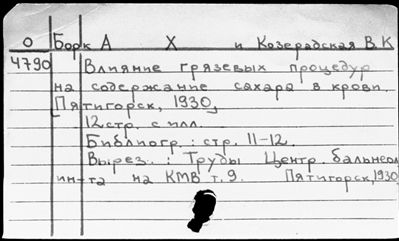 О Борк А Х и Козерадская В.К
4790 Влияние грязевых процедур
на содержание сахара в крови.
Пятигорск, 1930,
12 стр. с илл.
Библиогр.: стр. 11-12.
Вырез.: Труды Центр. бальнеол
ин-та на КМВ т. 9. Пятигорск, 1930